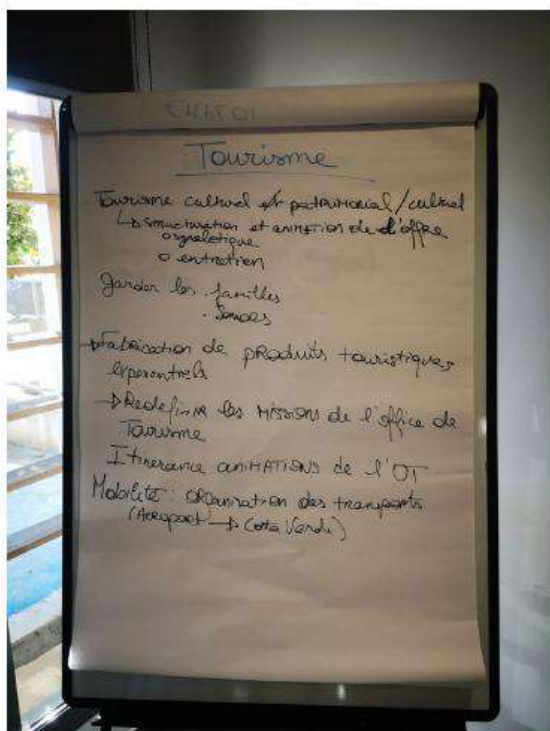 Tourisme
Tourisme culturel et patrimonial / culturel
↳ structuration et animation de d'offre
o signaletique
o entretien
Garder les familles
. Seniors
→ Fabrication de produits touristiques
experentiels
→ Redefinir les missions de l'office de
Tourisme
Itinerance animations de l'OT
Mobilité : organisation des transports
(Aeroport → Costa Verde)